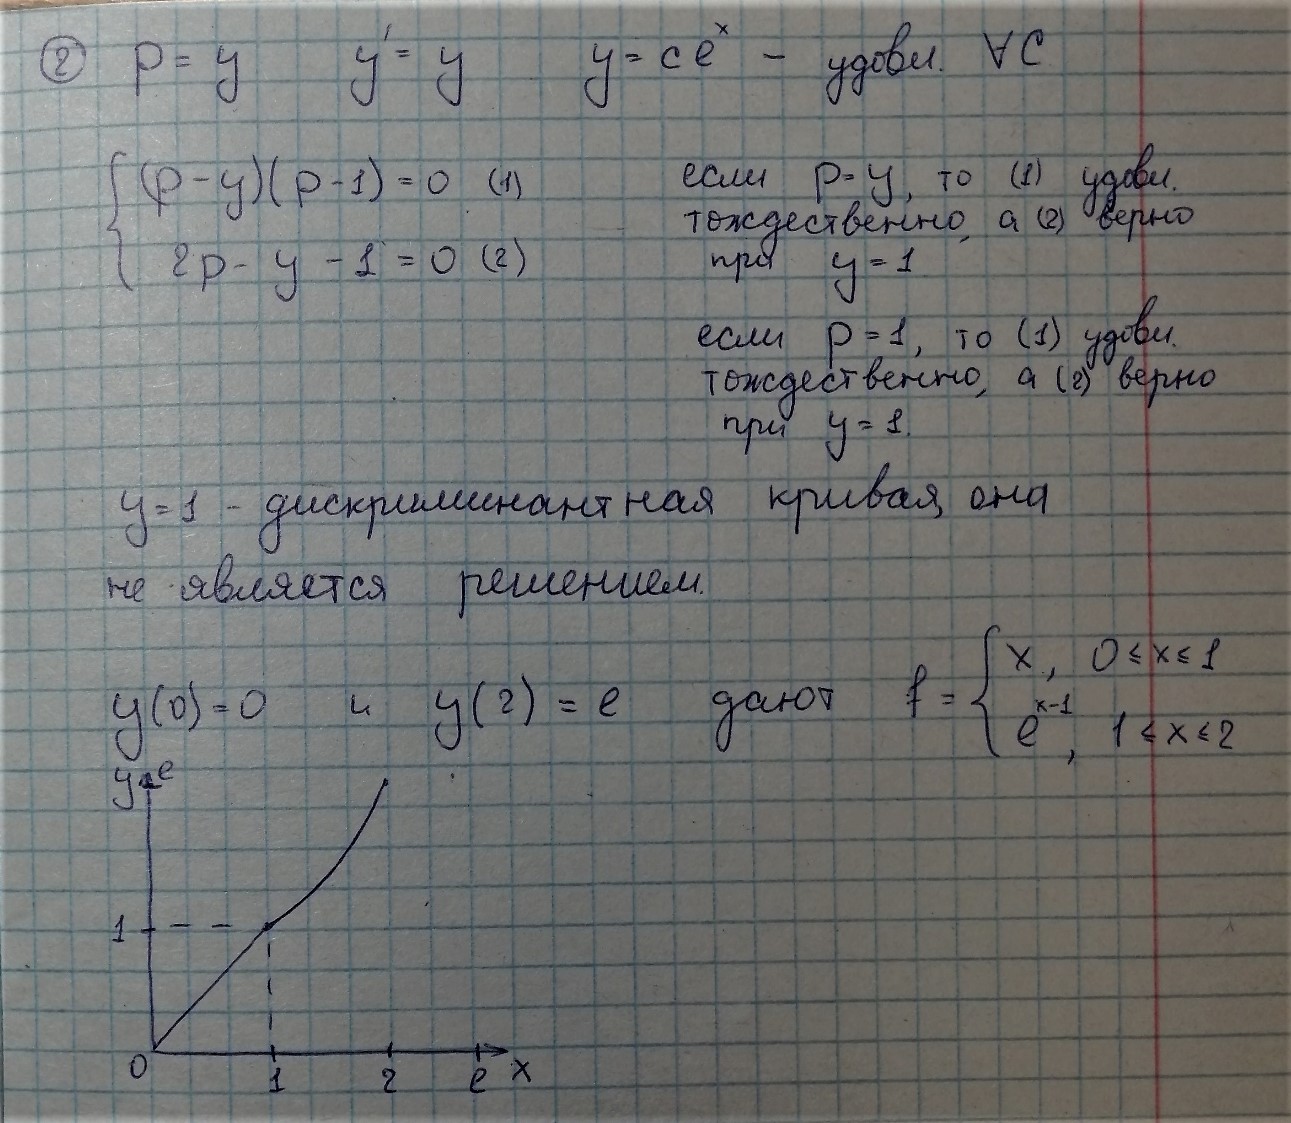 ② p = y y' = y y = c eˣ – удовл. ∀C
{ (p - y)(p - 1) = 0 (1) если p = y, то (1) удовл.
тождественно, а (2) верно
2p - y - 1 = 0 (2) при y = 1
если p = 1, то (1) удовл.
тождественно, а (2) верно
при y = 1.
y = 1 - дискриминантная кривая, она
не является решением.
y(0) = 0 и y(2) = e дают f = { x, 0 ≤ x ≤ 1
e^{x-1}, 1 ≤ x ≤ 2
y e
1
0 1 2 e x